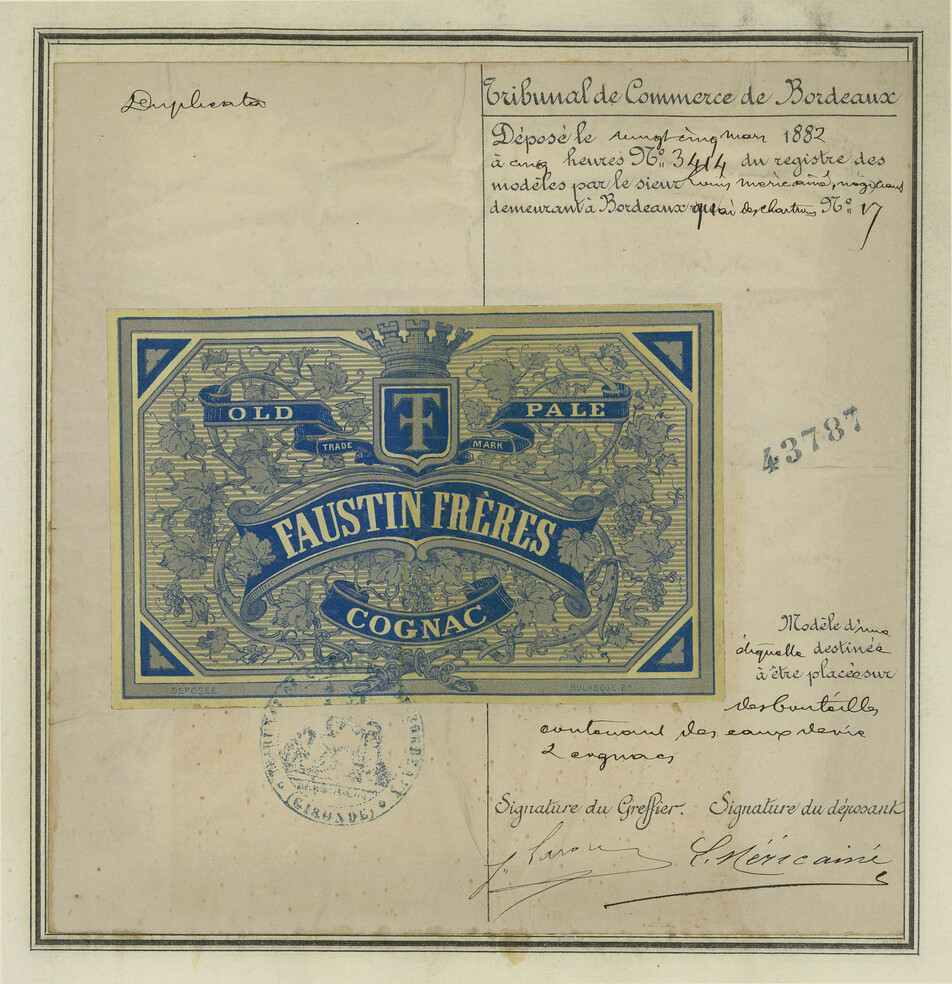 Duplicata
Tribunal de Commerce de Bordeaux
Déposé le vingt cinq mars 1882
à cinq heures No. 3414 du registre des
modèles par le sieur Louis Méricainé, négociant
demeurant à Bordeaux quai des chartrons No. 17
OLD
PALE
TRADE
MARK
FAUSTIN FRÈRES
COGNAC
DÉPOSÉE
43787
Modèle d'une
étiquette destinée
à être placée sur
des bouteilles
contenant des eaux de vie
& cognacs
(GIRONDE)
Signature du Greffier.
Signature du déposant
L. Méricainé